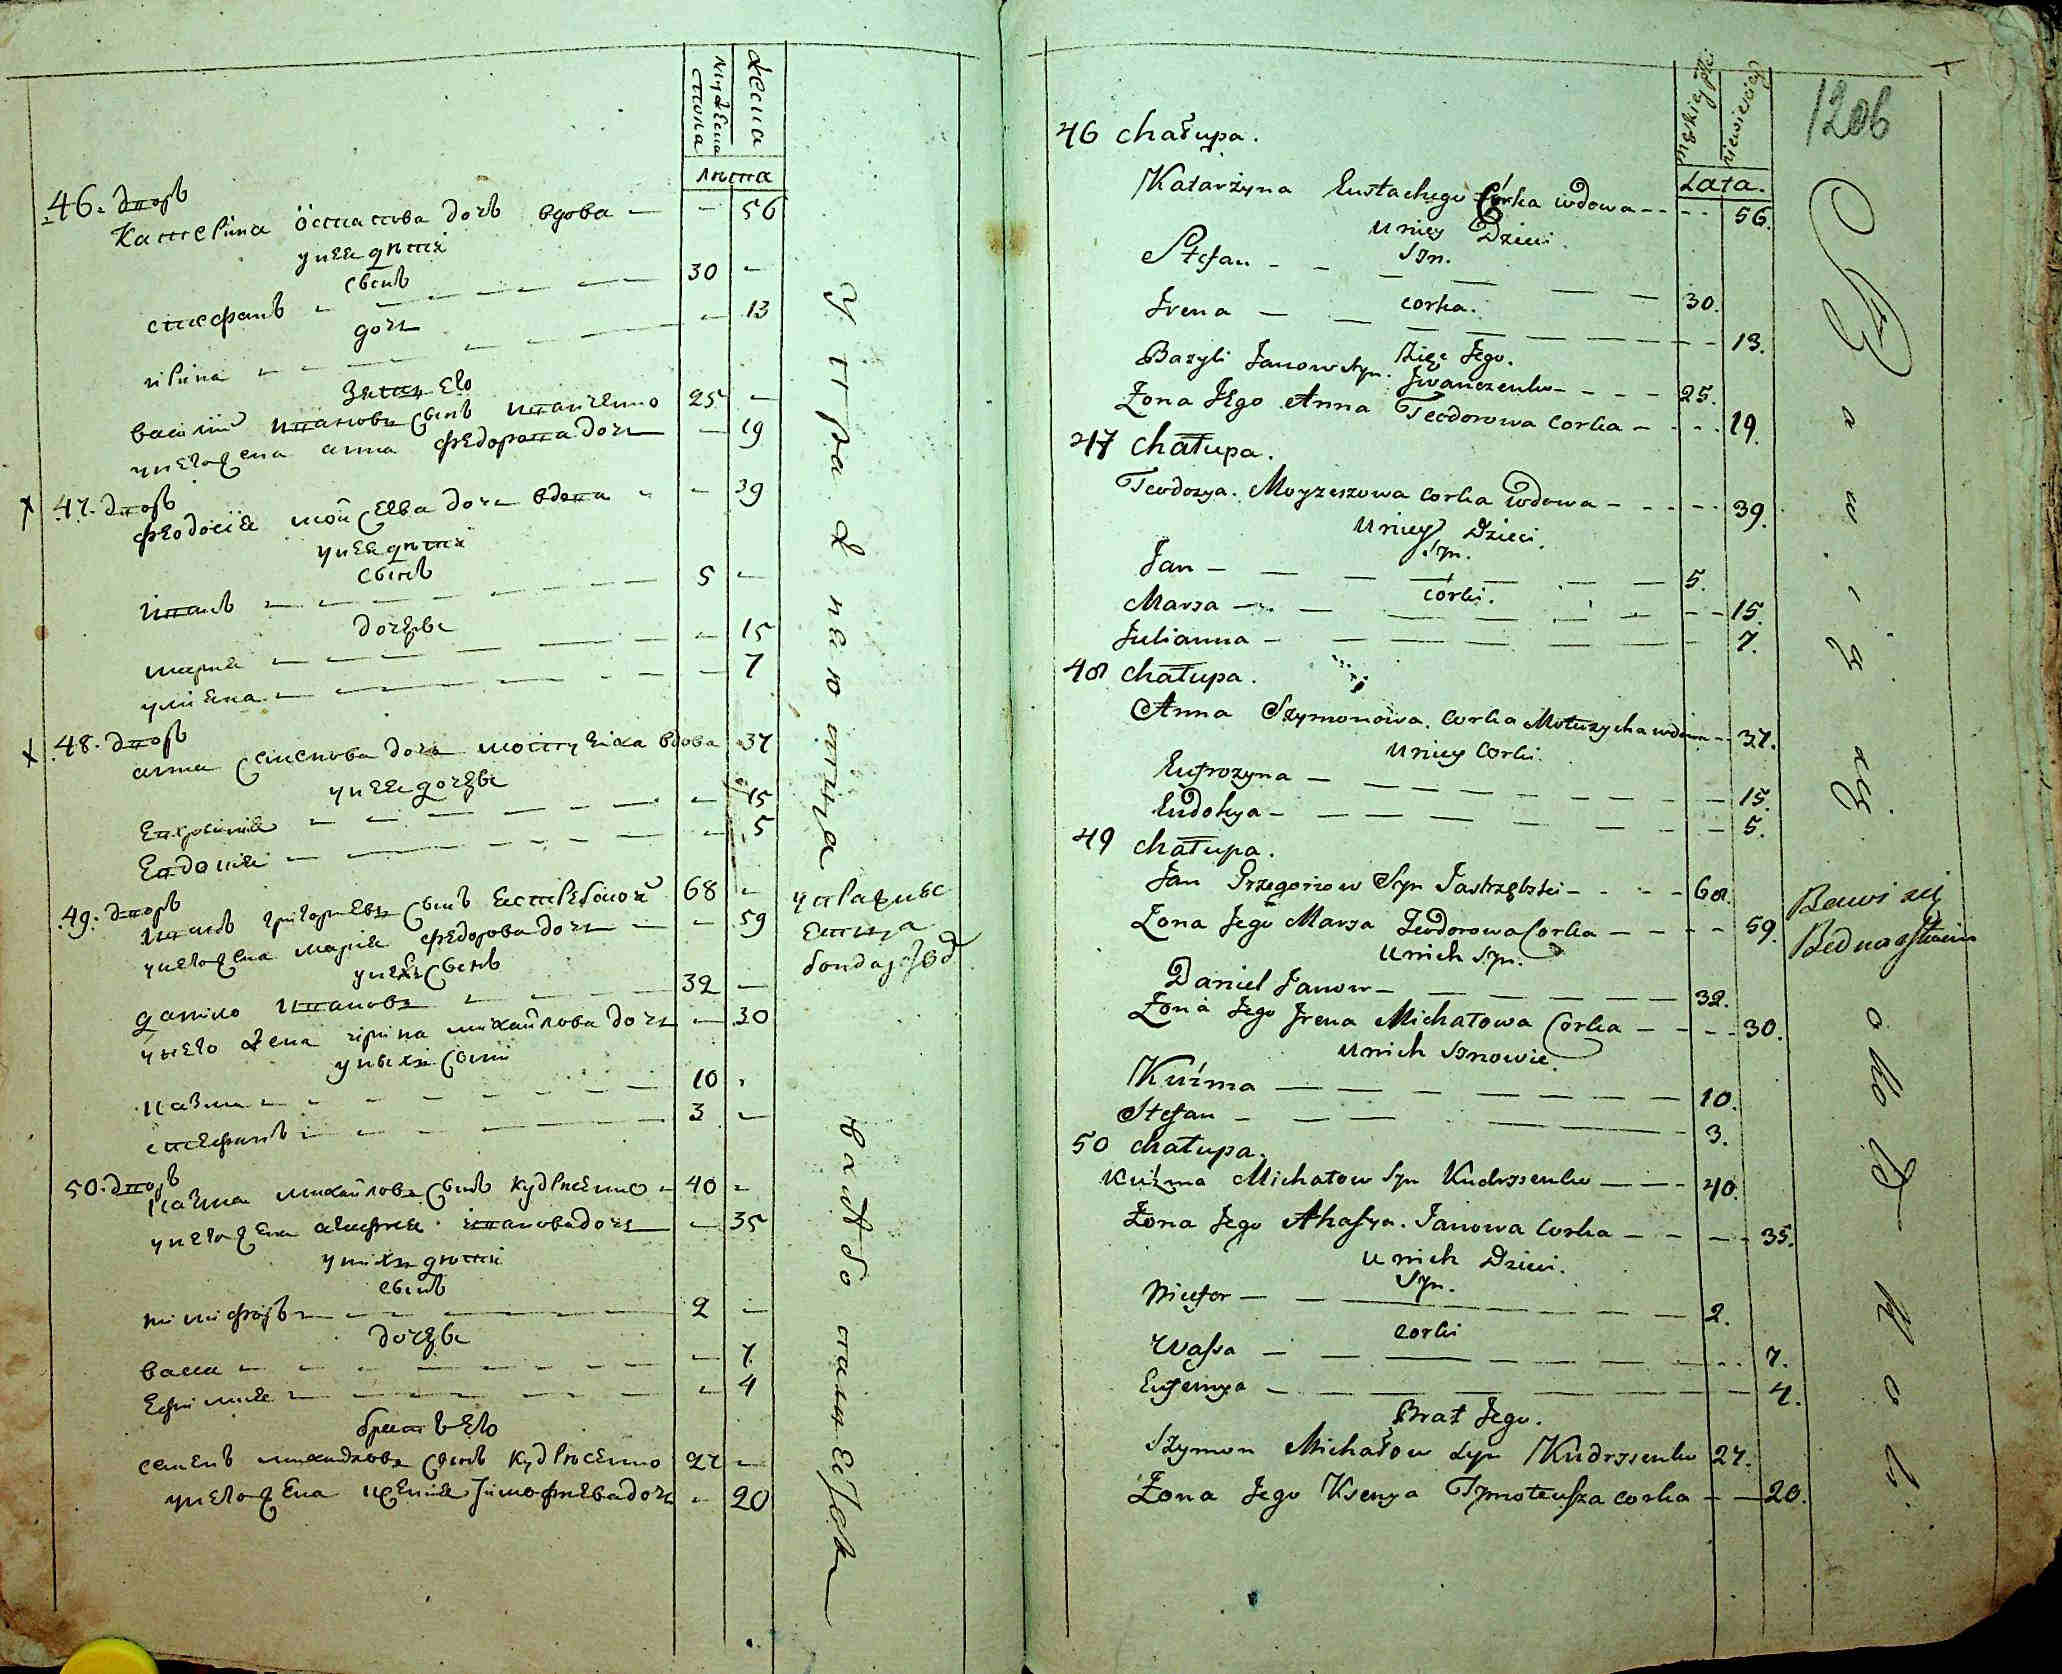 мужеска
пола
женска
лѣта
46. дворъ
Катерина Остапова дочь вдова — — 56
у нея дѣти
сынъ
стефанъ — 30 —
дочь
ирина — — 13
зять его
василий Ивановъ сынъ иванченко 25 —
у него жена анна федорова дочь — 19
47. дворъ
феодосия мойсеева дочь вдова — — 39
у нея дѣти
сынъ
иванъ — 5 —
дочери
мария — — 15
улияна — — 7
48. дворъ
анна семенова дочь вдова 37
у нея дочери
Евфросиния — — 15
Евдокия — — 5
49. дворъ
иванъ григориевъ сынъ 68 —
у него жена мария федорова дочь — 59
у нихъ сынъ
данило ивановъ — 32 —
у него жена ирина михайлова дочь — 30
у нихъ сыни
козма — 10 -
стефанъ — 3 —
50. дворъ
козма михайловъ сынъ кудриенко 40 -
у него жена агафия иванова дочь — 35
у нихъ дѣти
сынъ
никифоръ — 2 —
дочери
васса — — 7
Ефимия — — 4
братъ его
семенъ михайловъ сынъ кудриенко 27 —
у него жена ксения тимофиева дочь - 20
бондарствѣ
męskiey płci
niewieściey
Lata.
1206
46 chałupa.
Katarżyna Eustachego Córka wdowa - - - - 56.
u niey Dzieci.
Syn.
Stefan — 30.
corka.
Irena — 13.
Zięć Jego.
Bazyli Janow Syn. Iwanczenko - - - - 25.
Żona Jego Anna Teodorowa corka - - - - 19.
47 chałupa.
Teodozya. Moyzeszowa corka wdowa - - - - 39.
u niey Dzieci.
Syn.
Jan — 5.
córki.
Marya — 15.
Julianna — 7.
48 chałupa.
Anna Szymonowa. corka Motuzycha wdowa - - 37.
u niey Corki.
Eufrozyna — 15.
Eudokya — 5.
49 chałupa.
Jan Grzegorzow Syn Jastrzębski - - - - 68.
Żona Jego Marya Teodorowa Corka - - - - 59.
Bawi się
Bednarstwem
u nich Syn.
Daniel Janow — 32.
Żona Jego Irena Michałowa Corka - - - - 30.
u nich Synowie.
Kuźma — 10.
Stefan — 3.
50 chałupa.
Kuźma Michałow Syn Kudryenko — 40.
Żona Jego Ahafya. Janowa corka - - - - 35.
u nich Dzieci.
Syn.
Nicefor — 2.
corki
Wassa — 7.
Eufemya — 4.
Brat Jego.
Szymon Michałow Syn Kudryenko 27.
Żona Jego Ksenya Tymoteusza corka — 20.